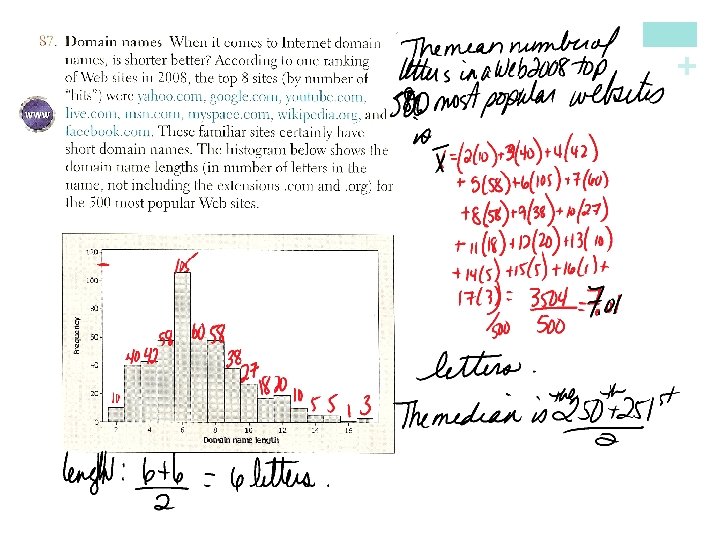 87. Domain names When it comes to Internet domain
names, is shorter better? According to one ranking
of Web sites in 2008, the top 8 sites (by number of
"hits") were yahoo.com, google.com, youtube.com,
live.com, msn.com, myspace.com, wikipedia.org, and
facebook.com. These familiar sites certainly have
short domain names. The histogram below shows the
domain name lengths (in number of letters in the
name, not including the extensions .com and .org) for
the 500 most popular Web sites.
www
The mean number of
letters in a web 2008 top
500 most popular websites
is
x̄ = (2(10)+3(40)+4(42)
+ 5(58)+6(105)+7(60)
+8(58)+9(38)+10(27)
+ 11(18)+12(20)+13(10)
+14(5)+15(5)+16(1)+
17(3) = 3504 = 7.01
/500 500
letters.
The median is the 250th + 251st
2
length: 6+6 = 6 letters.
2
+
Frequency
120
100
80
60
40
20
0
10 40 42 58 105 60 58 38 27 18 20 10 5 5 1 3
2 4 6 8 10 12 14 16
Domain name length